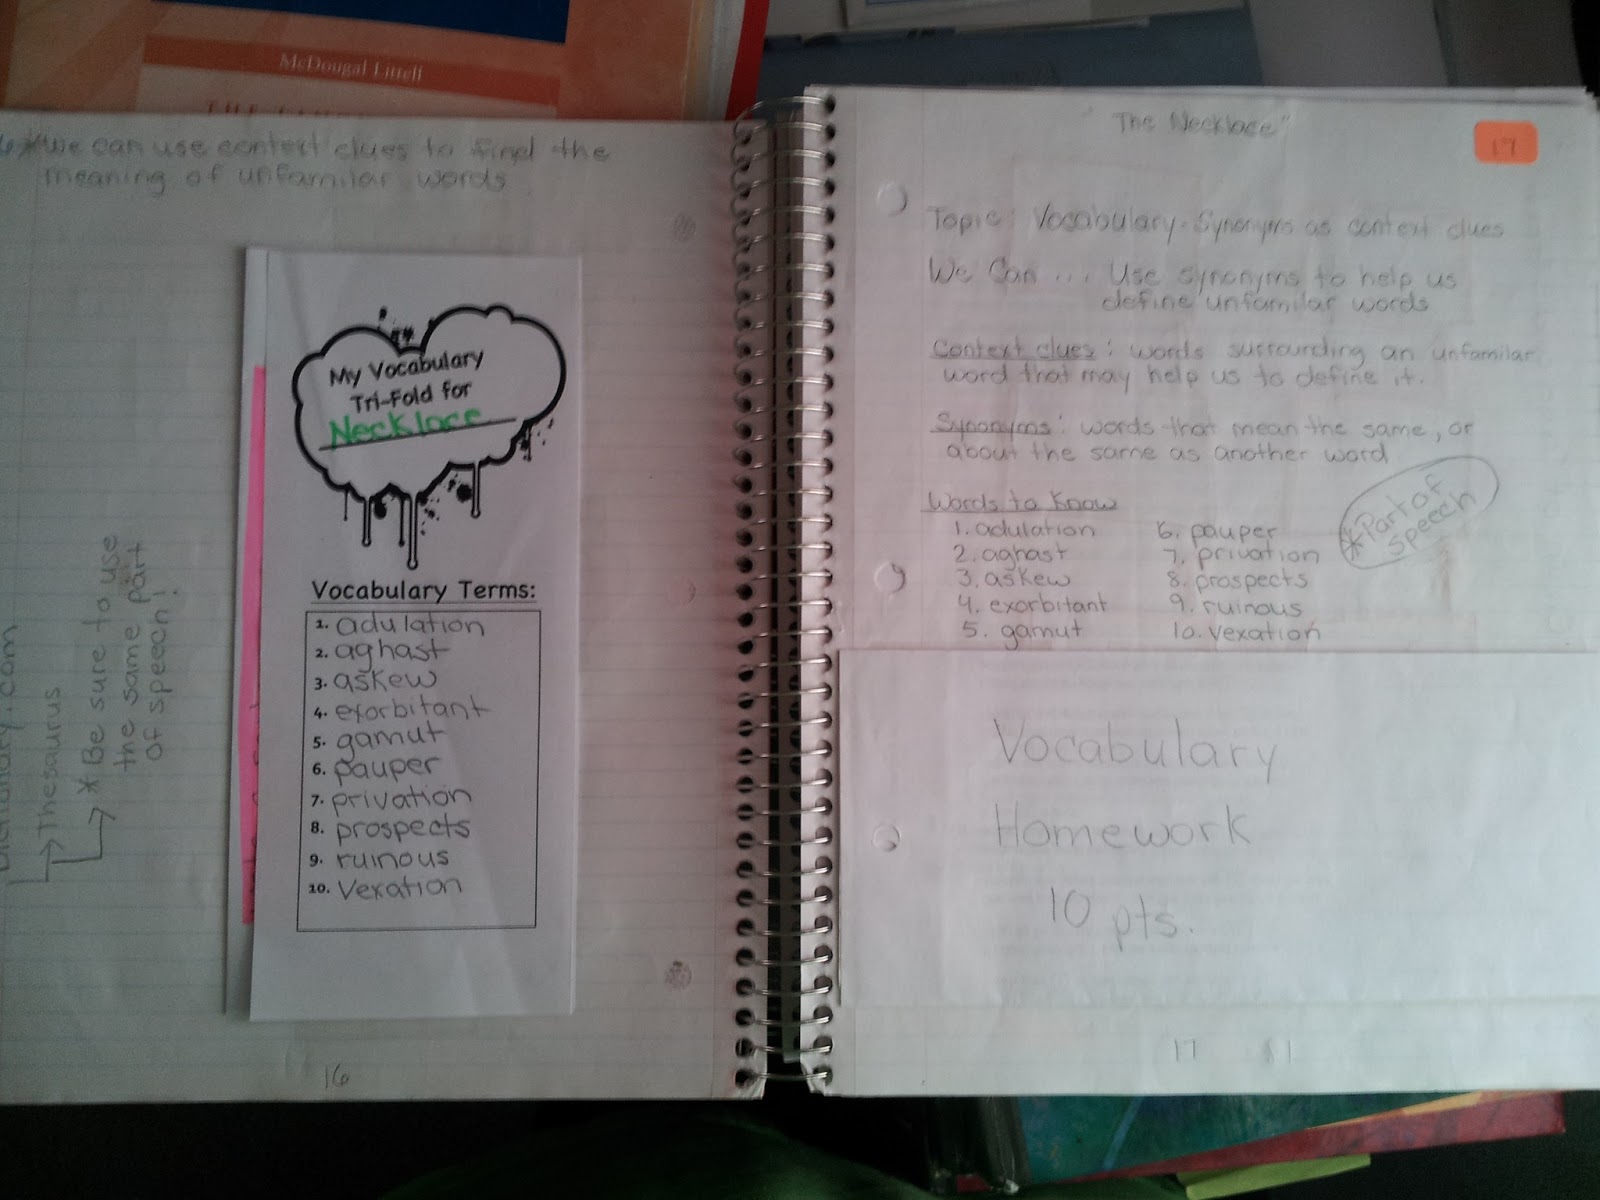 McDougal Littell
*We can use context clues to find the
meaning of unfamilar words
My Vocabulary
Tri-Fold for
Necklace
Vocabulary Terms:
1. adulation
2. aghast
3. askew
4. exorbitant
5. gamut
6. pauper
7. privation
8. prospects
9. ruinous
10. Vexation
Thesaurus
* Be sure to use
the same part
of speech!
16
"The Necklace"
17
Topic: Vocabulary-Synonyms as context clues
We Can ... Use synonyms to help us
define unfamilar words
Context clues: words surrounding an unfamilar
word that may help us to define it.
Synonyms: words that mean the same, or
about the same as another word
Words to Know
1. adulation
2. aghast
3. askew
4. exorbitant
5. gamut
6. pauper
7. privation
8. prospects
9. ruinous
10. vexation
*Part of
speech
Vocabulary
Homework
10 pts.
17